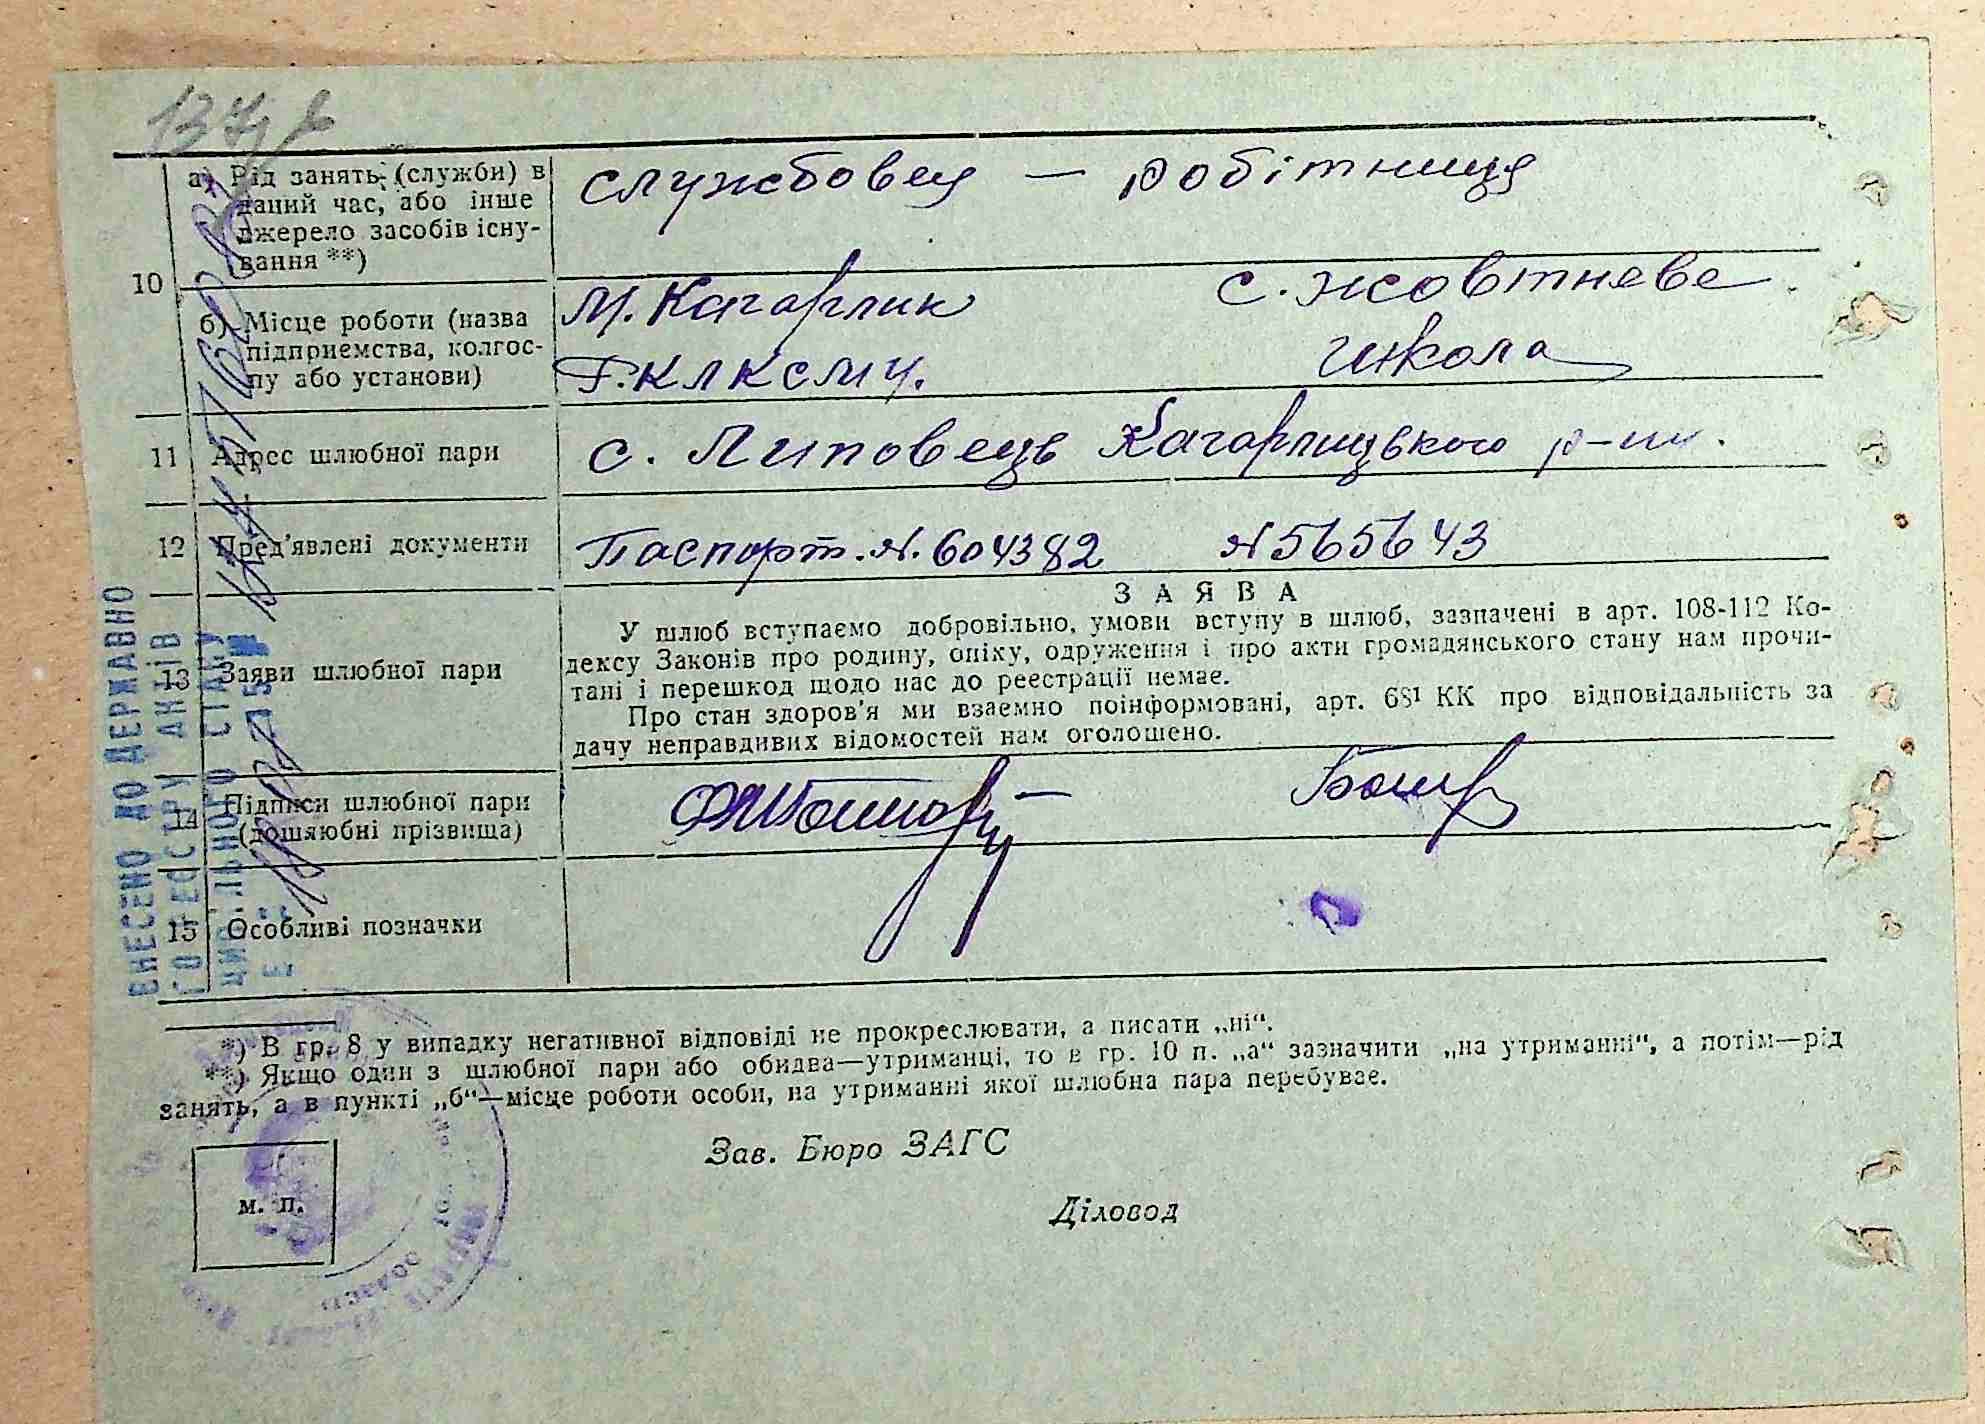 10
а) Рід занять (служби) в даний час, або інше джерело засобів існування **)
службовец — робітниця
б) Місце роботи (назва підприємства, колгоспу або установи)
м. Кагарлик с. Жовтневе
школа
11 Адрес шлюбної пари
с. Липовець Кагарлицького р-ну.
12 Пред'явлені документи
Паспорт. №. 604382 № 565643
13 Заяви шлюбної пари
ЗАЯВА
У шлюб вступаємо добровільно, умови вступу в шлюб, зазначені в арт. 108-112 Ко-
дексу Законів про родину, опіку, одруження і про акти громадянського стану нам прочи-
тані і перешкод щодо нас до реєстрації немає.
Про стан здоров'я ми взаємно поінформовані, арт. 68¹ КК про відповідальність за
дачу неправдивих відомостей нам оголошено.
14 Підписи шлюбної пари
(дошлюбні прізвища)
15 Особливі позначки
ВНЕСЕНО ДО ДЕРЖАВНО
ГО РЕЄСТРУ АКТІВ
ЦИВІЛЬНОГО СТАНУ
*) В гр. 8 у випадку негативної відповіді не прокреслювати, а писати „ні“.
**) Якщо один з шлюбної пари або обидва—утриманці, то в гр. 10 п. „а“ зазначити „на утриманні“, а потім—рід
занять, а в пункті „б“—місце роботи особи, на утриманні якої шлюбна пара перебуває.
Зав. Бюро ЗАГС
м. п.
Діловод